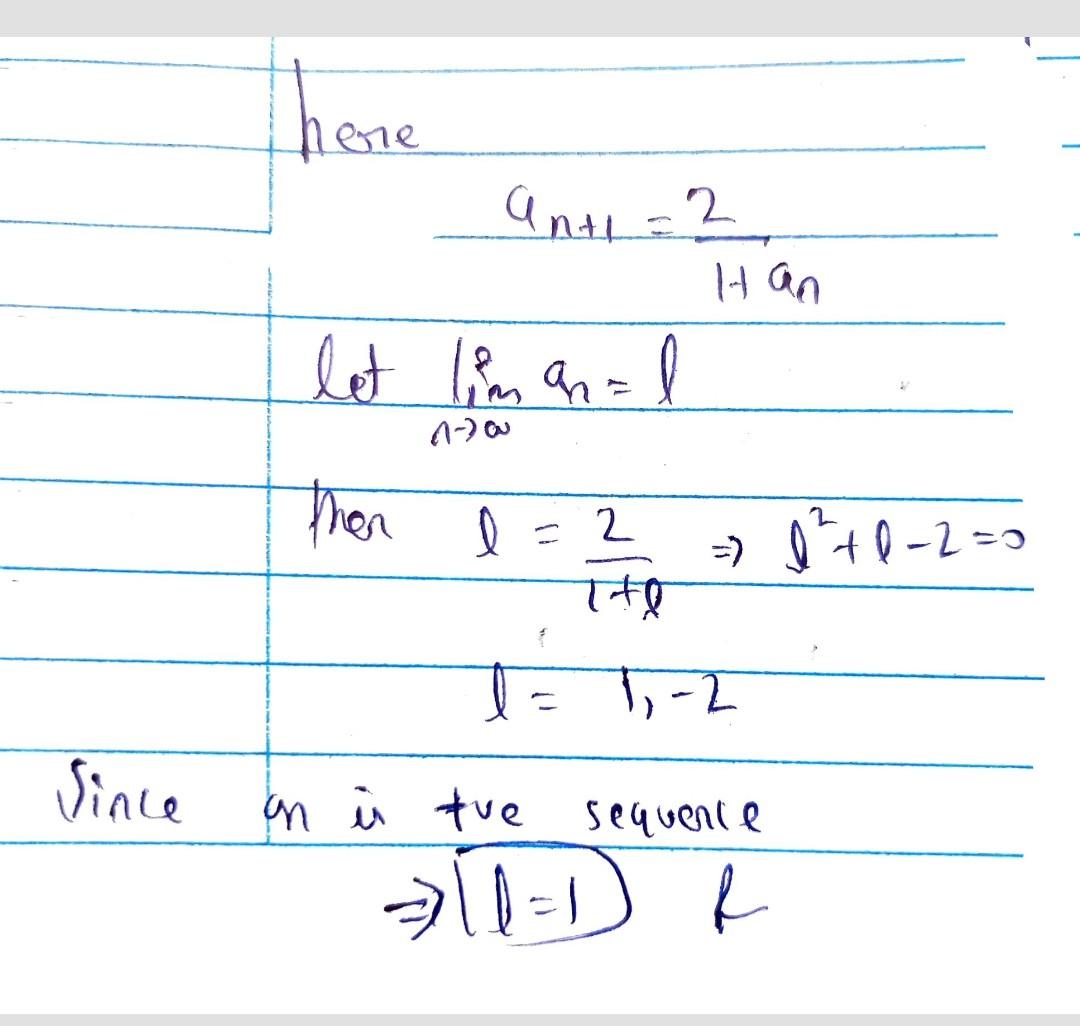 here
a_{n+1} = 2 / (1 + a_n)
let lim_{n→∞} a_n = l
then l = 2 / (1 + l) ⇒ l² + l - 2 = 0
l = 1, -2
Since a_n is +ve sequence
⇒ l = 1